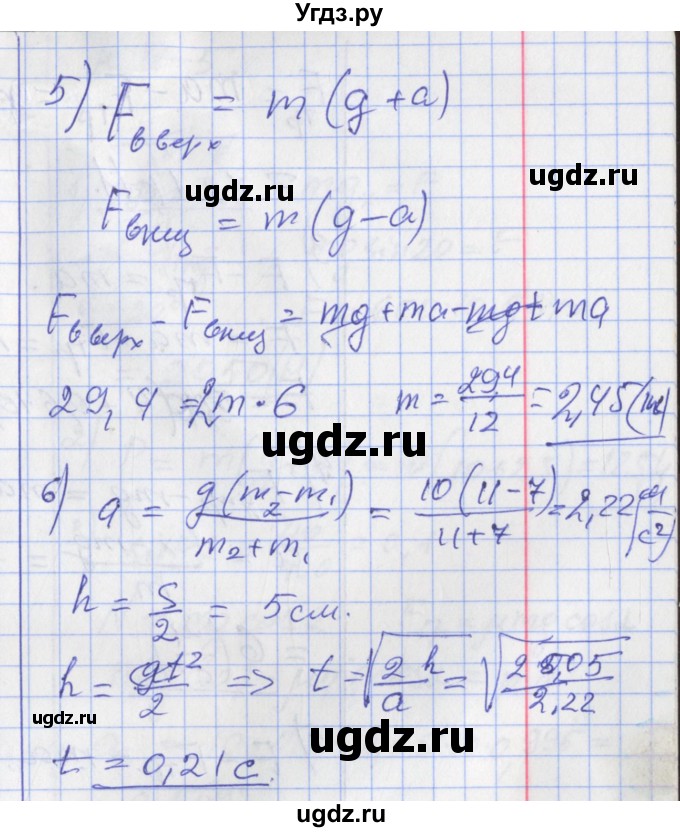 Угдз.ру
5) F вверх = m (g + a)
ugdz.ru
F вниз = m (g – a)
F вверх – F вниз = mg + ma – mg + ma
29,4 = 2m · 6 m = 29,4/12 = 2,45 (кг)
ugdz.ru
6) a = g(m₂ – m₁)/(m₂ + m₁) = 10(11 – 7)/(11 + 7) = 2,22 (м/с²)
h = S/2 = 5 см.
h = at²/2 => t = √(2h/a) = √(2 0,05/2,22)
ugdz.ru
ugdz.ru
t = 0,21 с.
ugdz.ru
ugdz.ru